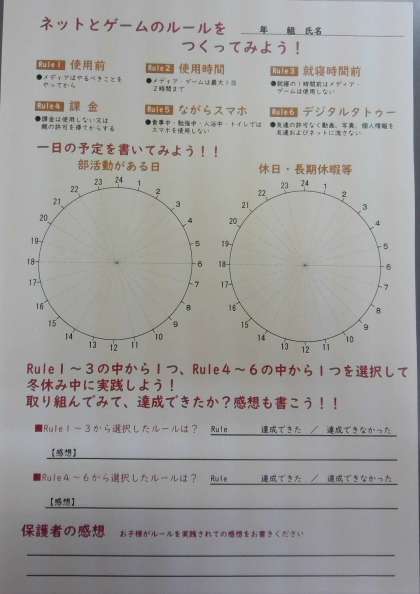 ネットとゲームのルールを
つくってみよう！
年　組　氏名
Rule1 使用前
●メディアはやるべきことを
やってから
Rule2 使用時間
●メディア・ゲームは最大1日
2時間まで
Rule3 就寝時間前
●就寝の1時間前はメディア・
ゲームは使用しない
Rule4 課金
●課金は使用しない又は
親の許可を得てからする
Rule5 ながらスマホ
●食事中・勉強中・入浴中・トイレでは
スマホを使用しない
Rule6 デジタルタトゥー
●友達の許可なく動画、写真、個人情報を
友達およびネットに流さない
一日の予定を書いてみよう！！
部活動がある日
24 1 2 3 4 5 6 7 8 9 10 11 12 13 14 15 16 17 18 19 20 21 22 23
休日・長期休暇等
24 1 2 3 4 5 6 7 8 9 10 11 12 13 14 15 16 17 18 19 20 21 22 23
Rule1～3の中から1つ、Rule4～6の中から1つを選択して
冬休み中に実践しよう！
取り組んでみて、達成できたか？感想も書こう！！
■Rule1～3から選択したルールは？ Rule 達成できた ／ 達成できなかった
【感想】
■Rule4～6から選択したルールは？ Rule 達成できた ／ 達成できなかった
【感想】
保護者の感想 お子様がルールを実践されての感想をお書きください